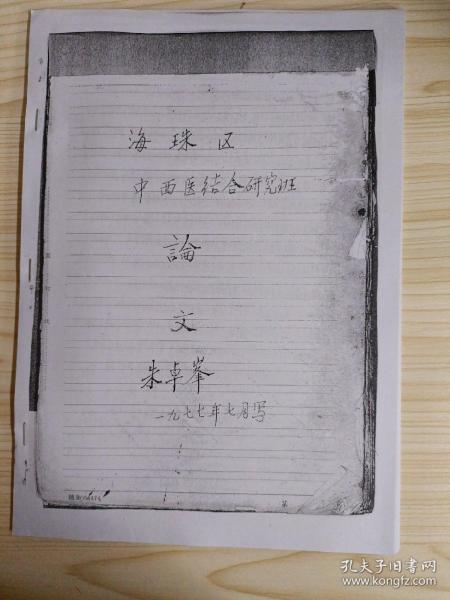 海珠区
中西医结合研究班
論
文
朱卓峯
一九七七年七月写
第
孔夫子旧书网
www.kongfz.com